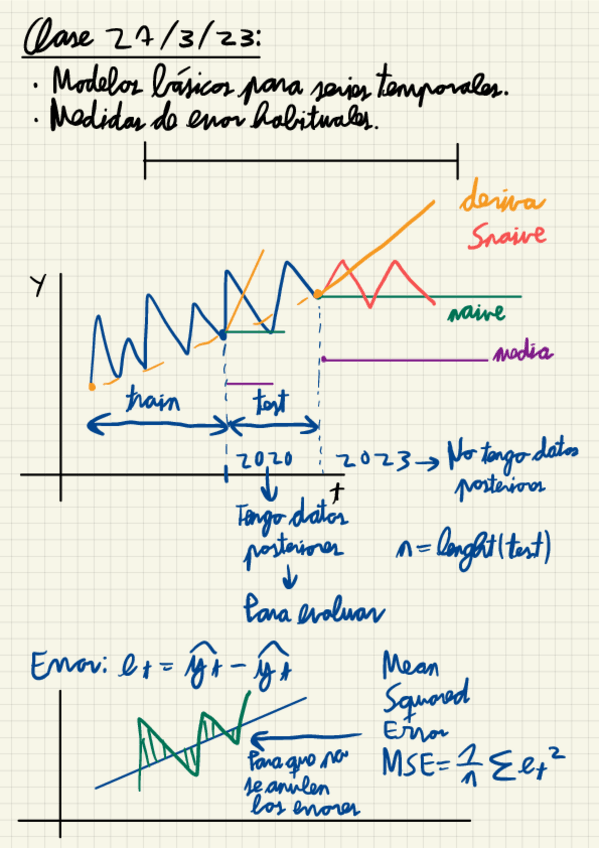 Clase 27/3/23:
· Modelos básicos para series temporales.
· Medidas de error habituales.
deriva
Snaive
Y
naive
media
train
test
2020
2023 → No tengo datos
posteriores
t
Tengo datos
posteriores
n = lenght(test)
Para evaluar
Error: et = ŷt - ŷt
Mean
Squared
Error
MSE = 1/n Σ et²
Para que no
se anulen
los errores